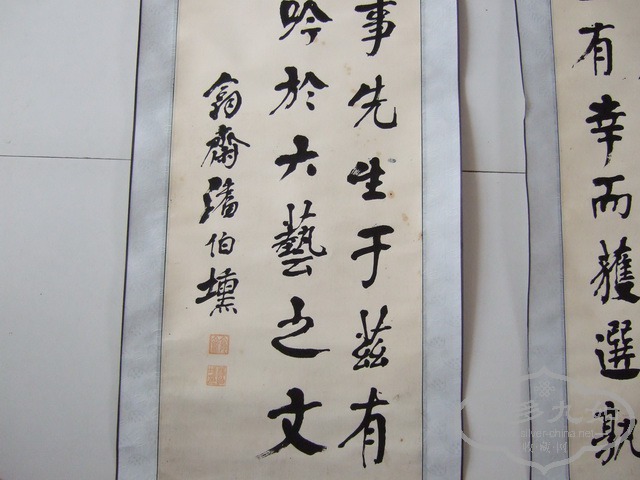 有幸而獲選孰
事先生于茲有
吟於六藝之文
齋潘伯壎
收藏网